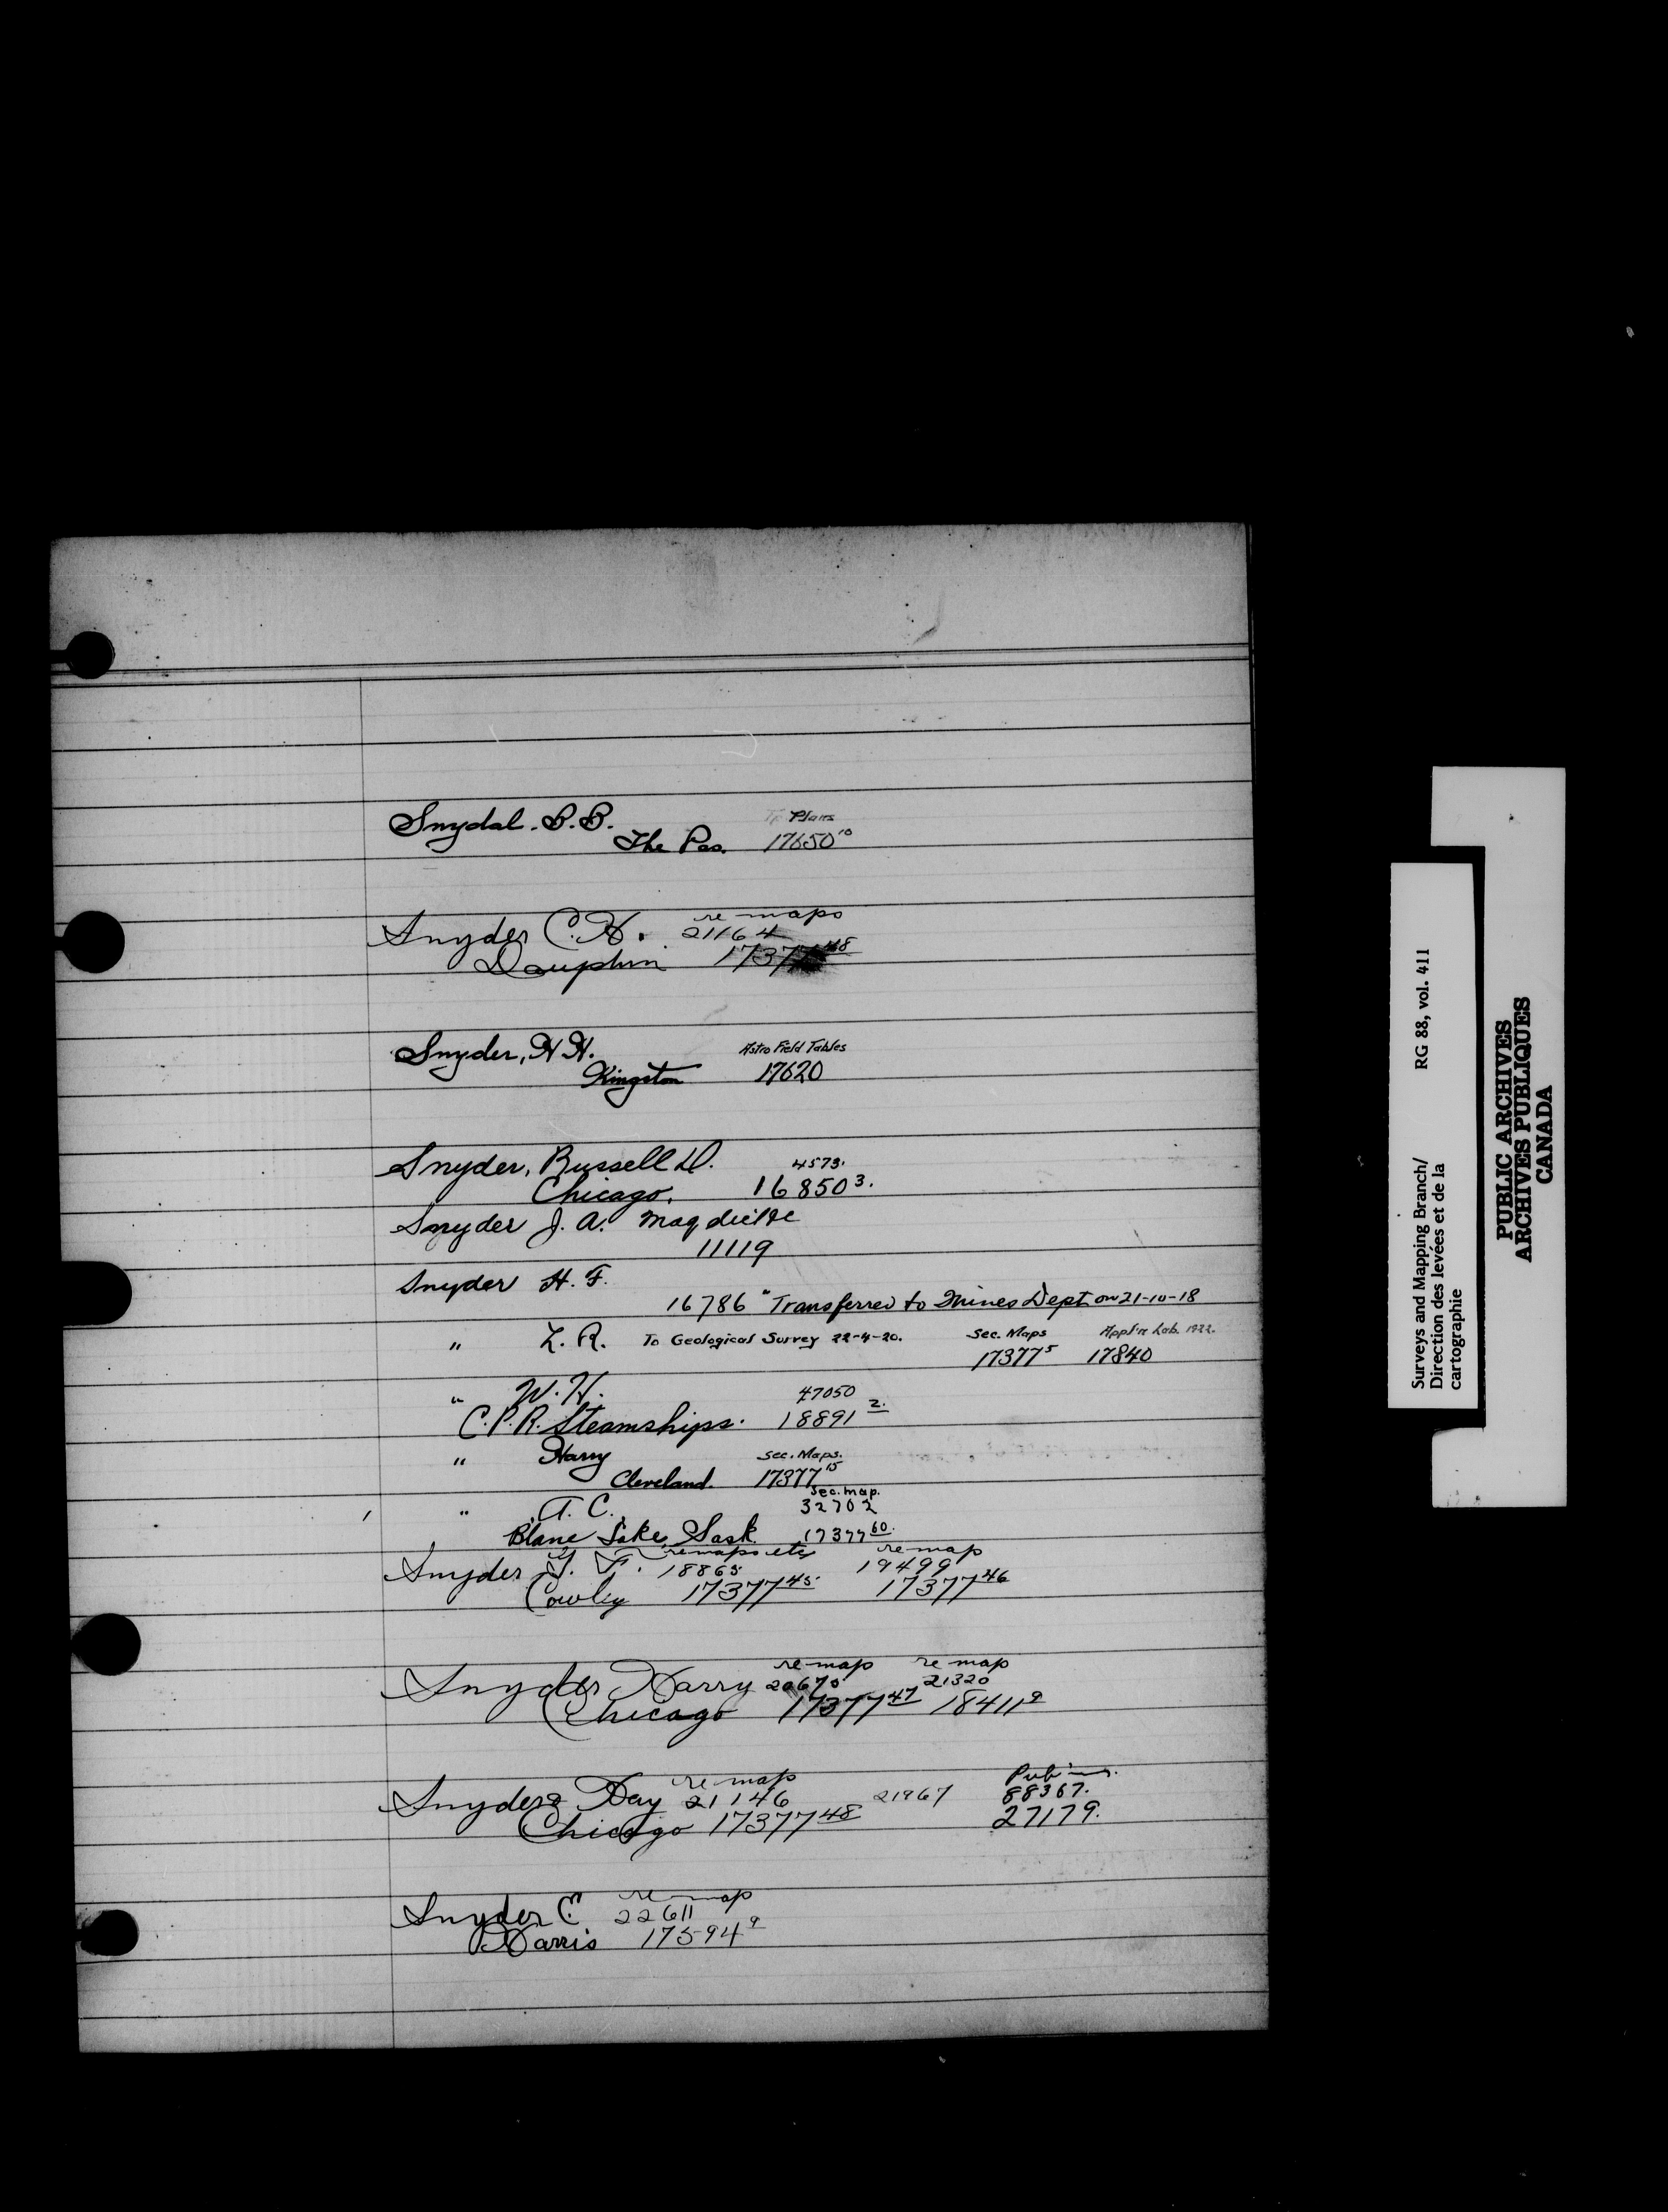 Snydal. B.B. Tp Plans
The Pas. 17650 10
Snyder C.H. re maps
21164
Dauphin 17377 48
Snyder, H H. Astro Field Tables
Kingston 17620
Snyder, Russell D. 4573.
Chicago. 16850 3.
Snyder J. A.
11119
Snyder H. F.
16786 "Transferred to Mines Dept on 21-10-18
" L. R. To Geological Survey 22-4-20. Sec. Maps Appl'n Lab. 1922.
17377 5 17840
" W. H. 47050
C.P.R. Steamships. 18891 2.
" Harry Sec. Maps.
Cleveland. 17377 15
Sec. map.
" A. C. 32702
Blane Lake, Sask. 17377 60.
re maps etc re map
Snyder F. 18865 19499
Cowley 17377 45. 17377 46
re map re map
Snyder Harry 20670 21320
Chicago 17377 47 18411 9
re map Pub'ns.
Snyder & Day 21146 21967 88367.
Chicago 17377 48 27179.
re map
Snyder C 22611
Harris 17594 9
Surveys and Mapping Branch/ RG 88, vol. 411
Direction des levées et de la
cartographie
PUBLIC ARCHIVES
ARCHIVES PUBLIQUES
CANADA